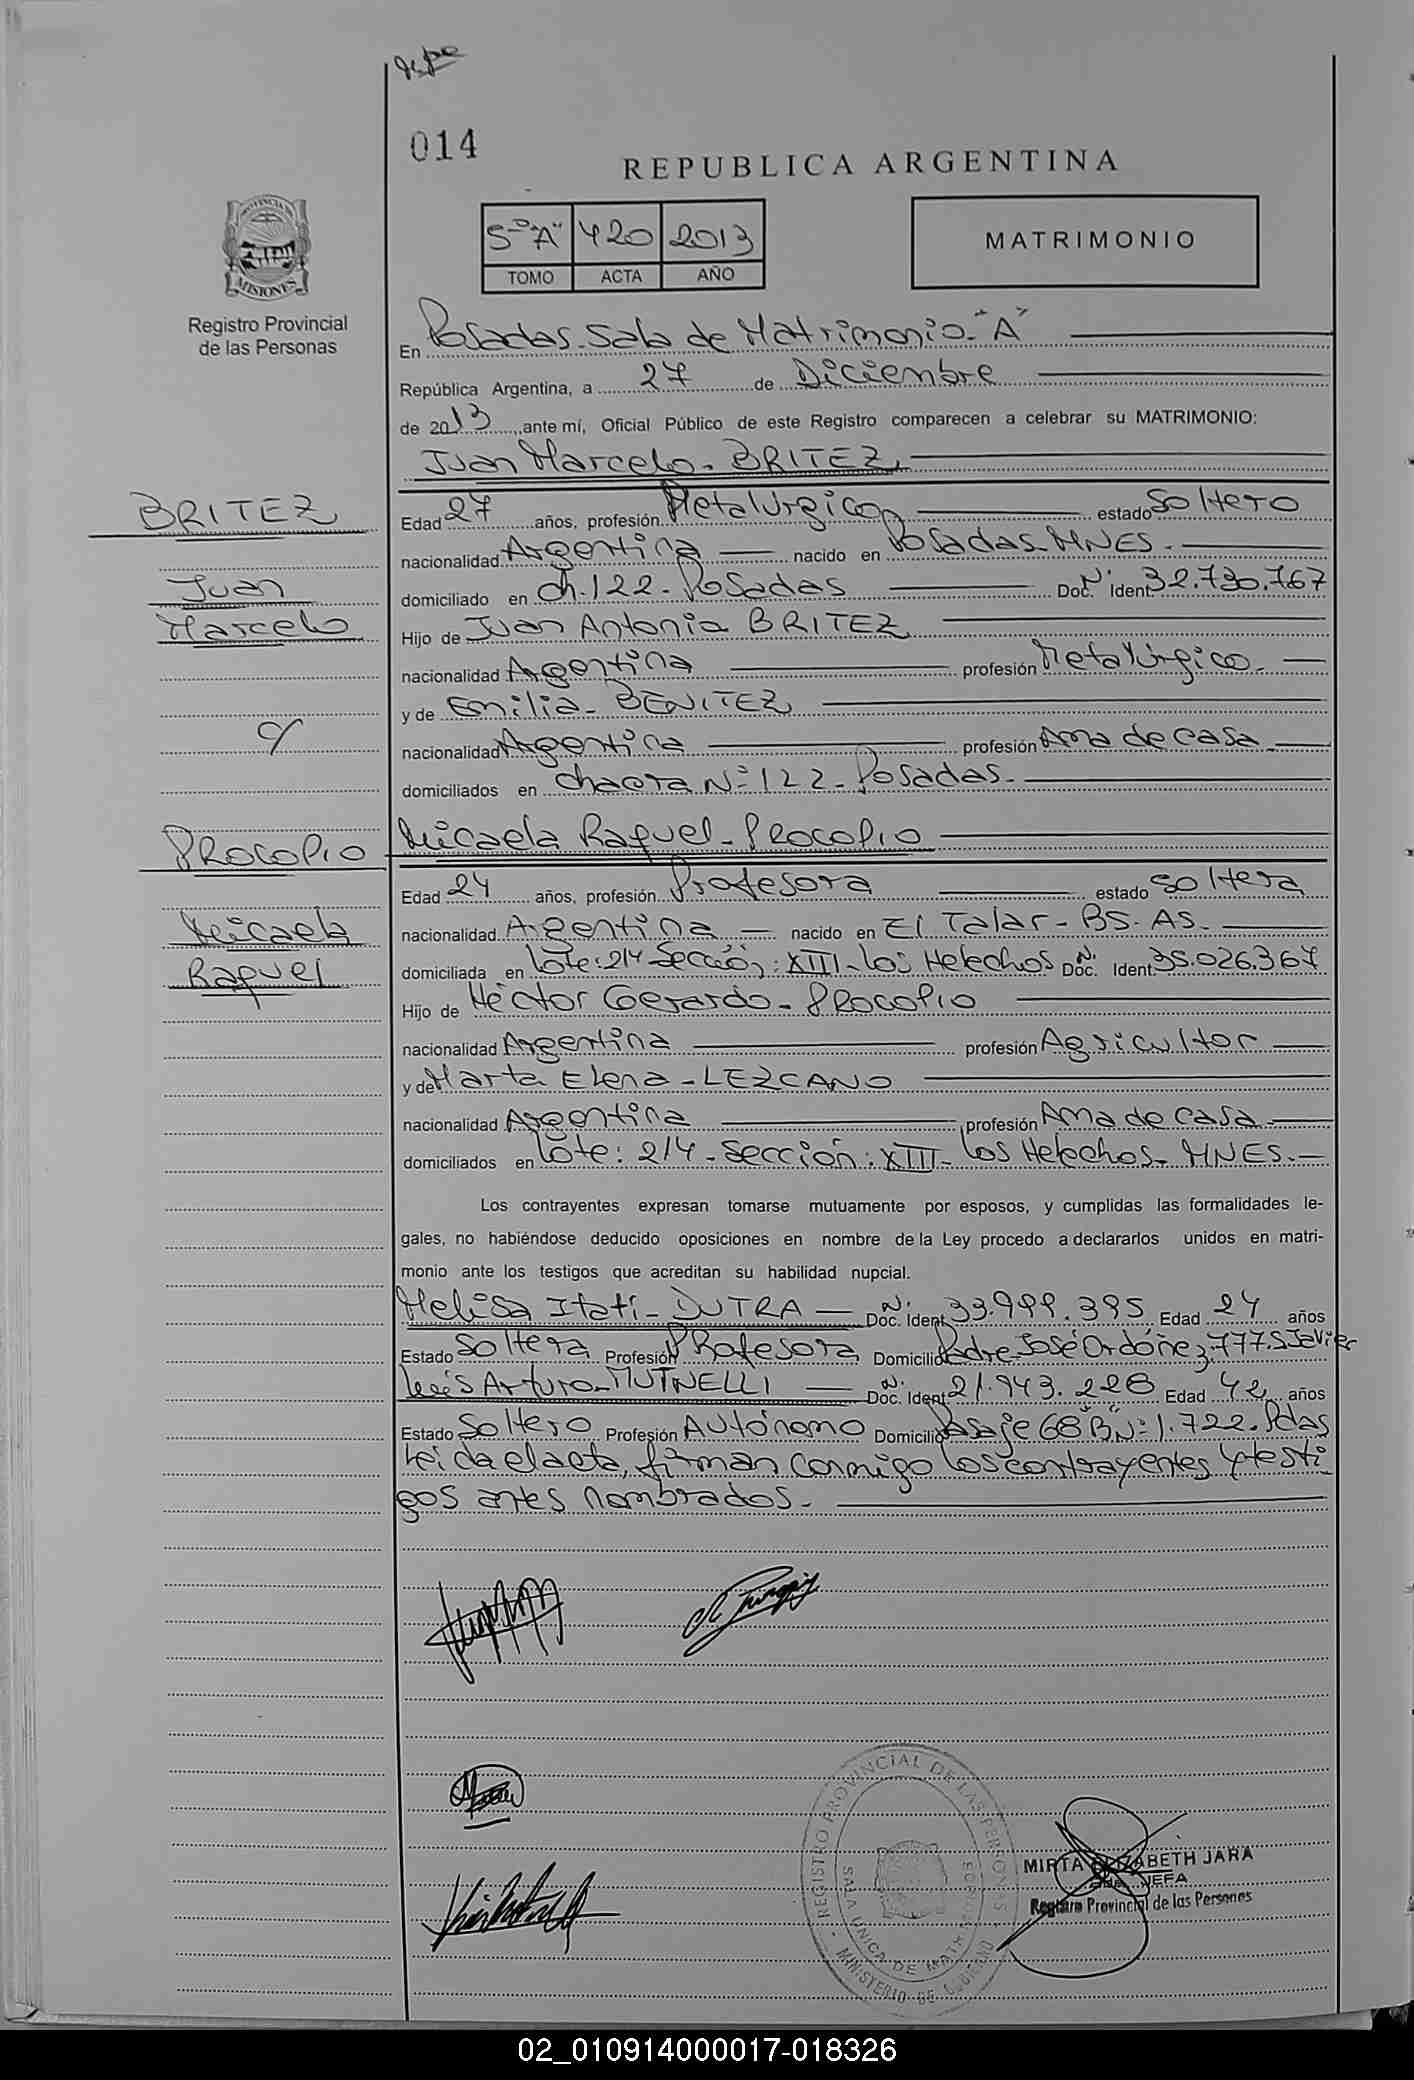 014
REPUBLICA ARGENTINA
5-º"A" 420 2013
TOMO ACTA AÑO
MATRIMONIO
PROVINCIA DE
MISIONES
Registro Provincial
de las Personas
En Posadas-Sala de Matrimonio-"A"
República Argentina, a 27 de Diciembre
de 2013, ante mí, Oficial Público de este Registro comparecen a celebrar su MATRIMONIO:
Juan Marcelo- BRITEZ
BRITEZ
Juan
Marcelo
c/
PROCOPIO
Micaela
Raquel
Edad 27 años, profesión Metalúrgico estado Soltero
nacionalidad Argentina nacido en Posadas-MNES.
domiciliado en ch.122- Posadas Doc. Nº Ident 32.730.767
Hijo de Juan Antonio BRITEZ
nacionalidad Argentina profesión Metalúrgico.
y de Emilia- BENITEZ
nacionalidad Argentina profesión Ama de casa
domiciliados en chacra Nº 122- Posadas.
Micaela Raquel- PROCOPIO
Edad 24 años, profesión Profesora estado Soltera
nacionalidad Argentina nacido en El Talar- BS. AS.
domiciliada en Lote: 214 Sección: XIII- Los Helechos Doc. Nº Ident 35.026.367
Hijo de Héctor Gerardo- PROCOPIO
nacionalidad Argentina profesión Agricultor
y de Marta Elena- LEZCANO
nacionalidad Argentina profesión Ama de casa
domiciliados en Lote: 214- Sección: XIII- Los Helechos- MNES.
Los contrayentes expresan tomarse mutuamente por esposos, y cumplidas las formalidades le-
gales, no habiéndose deducido oposiciones en nombre de la Ley procedo a declararlos unidos en matri-
monio ante los testigos que acreditan su habilidad nupcial.
Melisa Itatí- DUTRA Doc. Nº Ident 33.999.395 Edad 24 años
Estado Soltera Profesión Profesora Domicilio Padre José Ordóñez 777. S Javier
Luis Arturo- MUTNELLI Doc. Nº Ident 21.943.228 Edad 42 años
Estado Soltero Profesión Autónomo Domicilio Pasaje 68 "B" Nº 1.722. Pdas
Leída el acta, firman conmigo los contrayentes y testi
gos antes nombrados.
REGISTRO PROVINCIAL DE LAS PERSONAS
MINISTERIO DE GOBIERNO
MIRTA ELIZABETH JARA
JEFA
Registro Provincial de las Personas
02_010914000017-018326